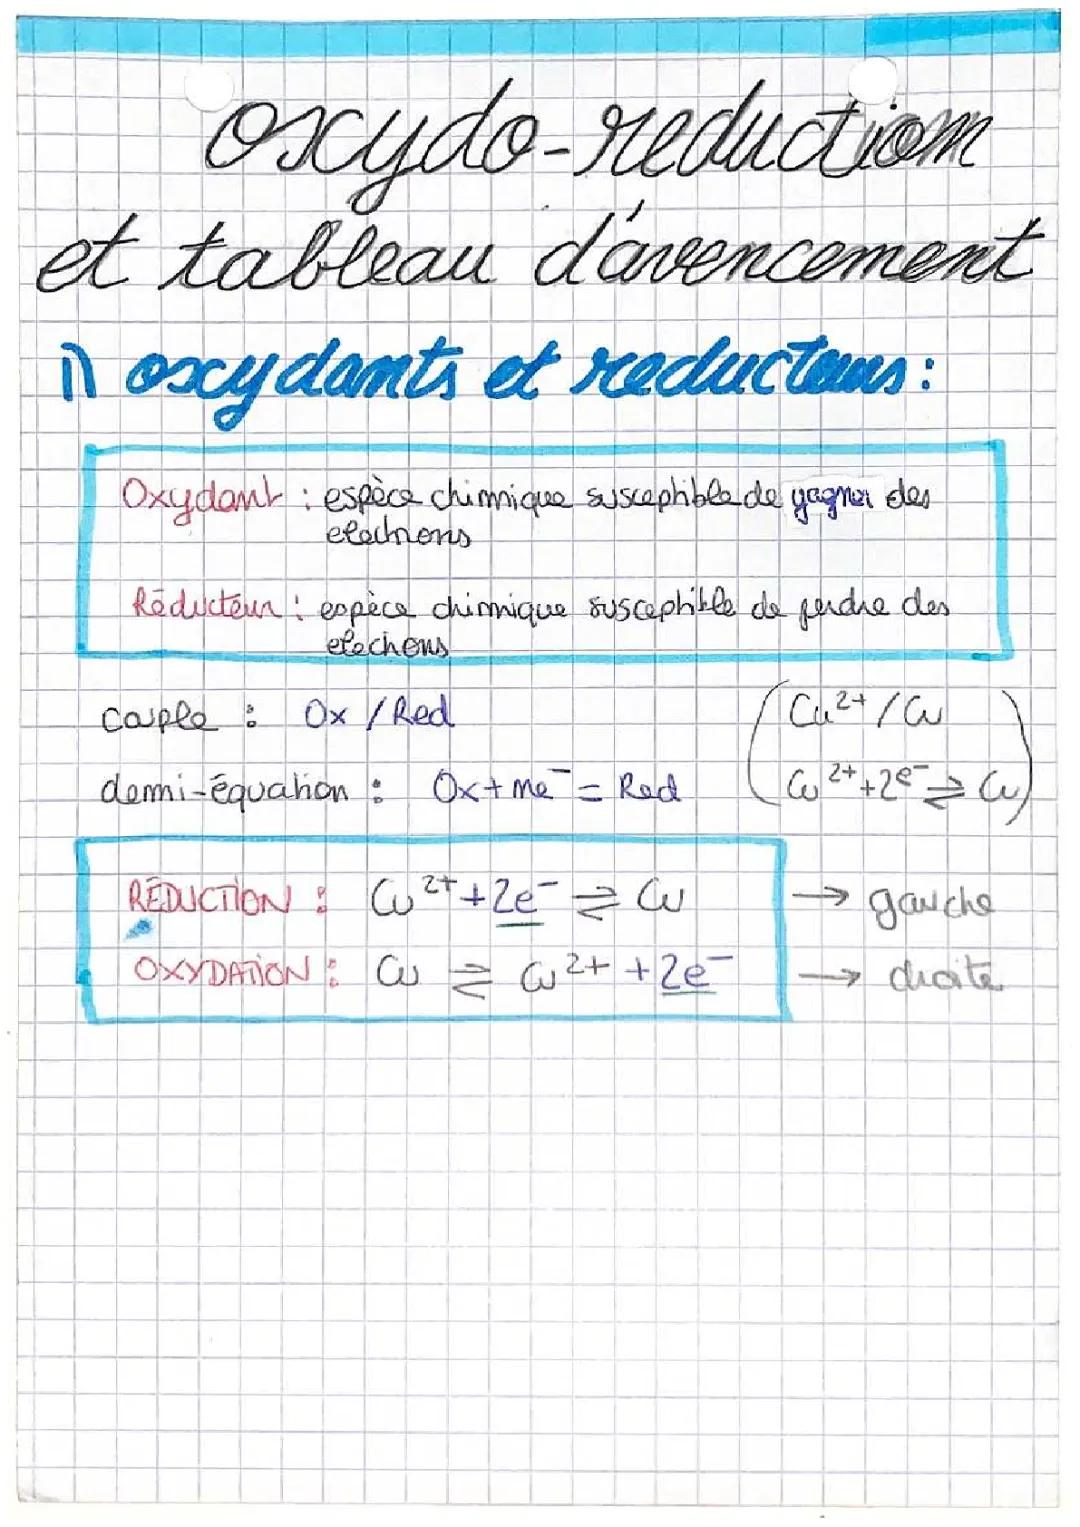 oxydo-reduction
et tableau d'avencement
1) oxydants et reducteurs :
Oxydant : espèce chimique susceptible de gagner des
electrons
Réducteur : espèce chimique susceptible de perdre des
electrons
couple : Ox / Red (Cu²⁺/Cu
demi-équation : Ox + ne⁻ = Red Cu²⁺+2e⁻ ⇌ Cu)
RÉDUCTION : Cu²⁺+2e⁻ ⇌ Cu → gauche
OXYDATION : Cu ⇌ Cu²⁺ +2e⁻ → droite